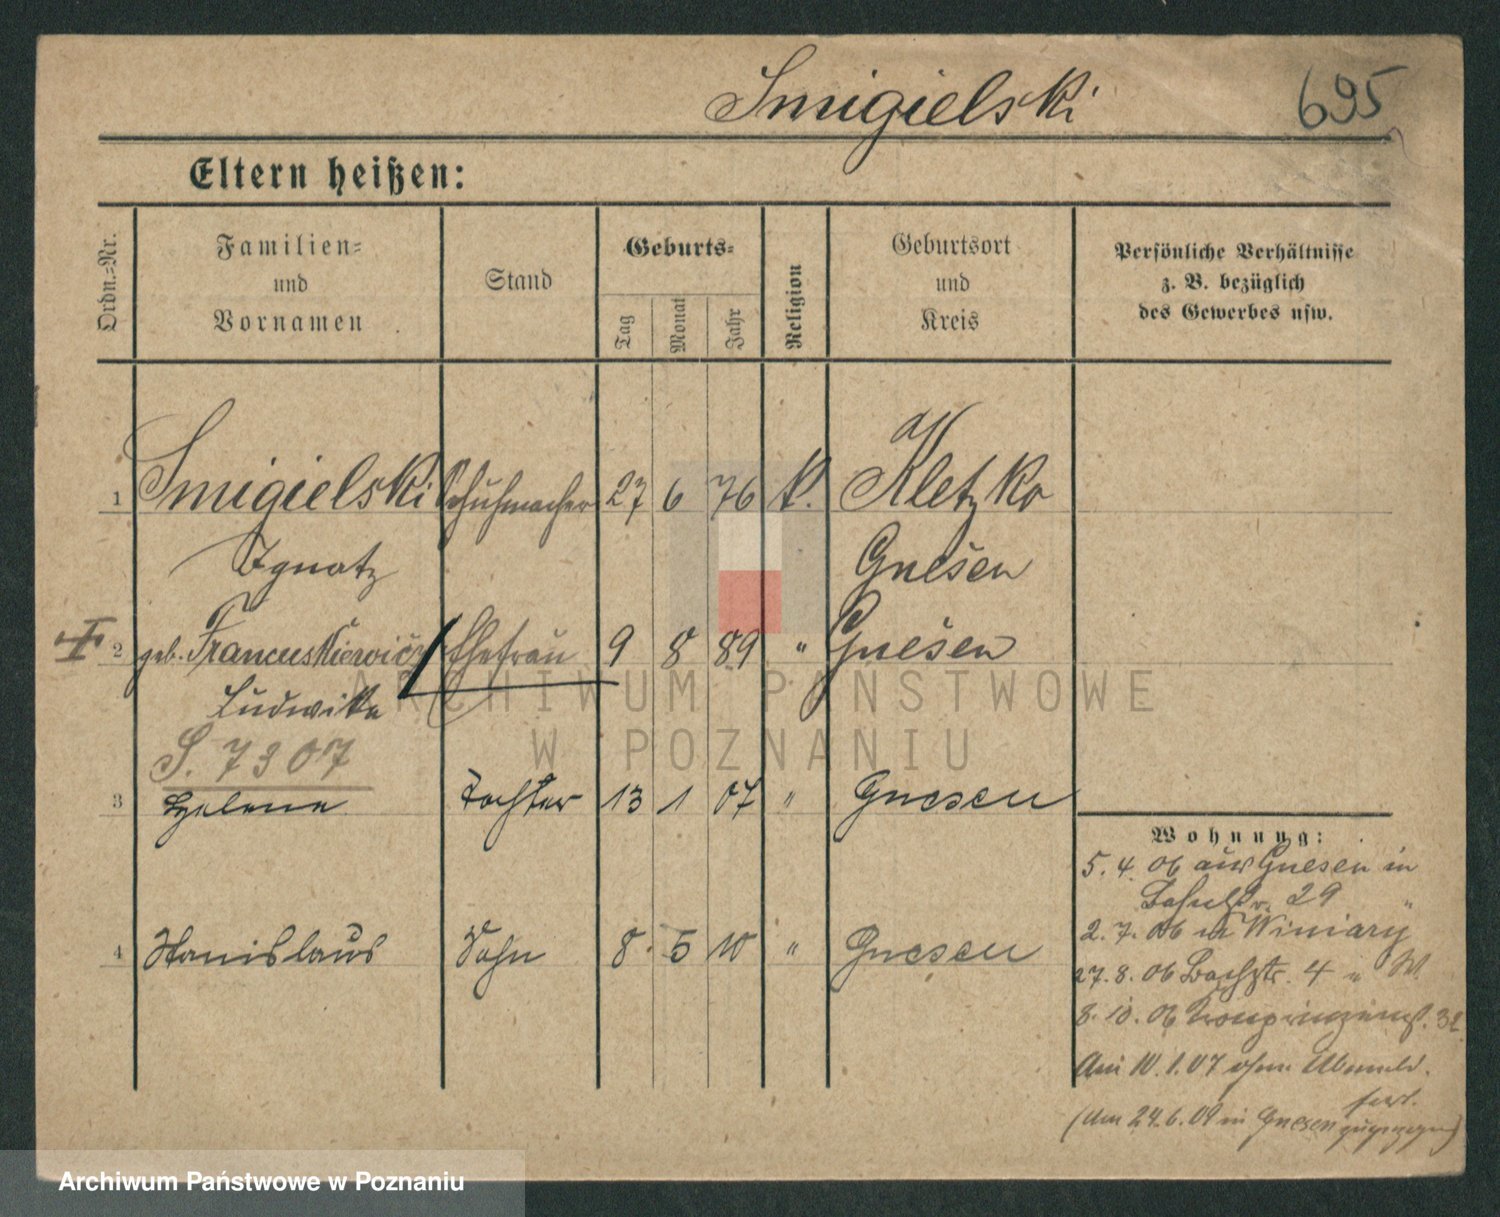 Smigielski 695
Eltern heißen:
Ordn.=Nr.
Familien= und Vornamen
Stand
Geburts=
Tag Monat Jahr
Religion
Geburtsort und Kreis
Persönliche Verhältnisse
z. B. bezüglich
des Gewerbes usw.
1 Smigielski Schuhmacher 27 6 76 k. Kletzko
Ignatz Gnesen
2 geb. Francuskiewicz Ehefrau 9 8 89 " Gnesen
Ludwika
S. 7307
3 Helene Tochter 13 1 07 " Gnesen
4 Stanislaus Sohn 8 5 10 " Gnesen
Wohnung:
5.4.06 aus Gnesen in
29
2.7.06 in Winiary
27.8.06 Bachstr. 4 " W.
8.10.06 Kronprinzenst.
Am 10.1.07 ohne Abmeld.
fort.
(Am 24.6.09 in Gnesen zugezogen)
ARCHIWUM PAŃSTWOWE
W POZNANIU
Archiwum Państwowe w Poznaniu